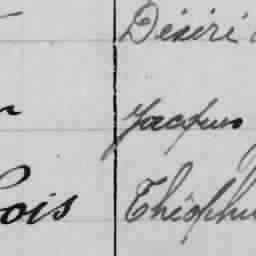 Désiré
Jacques
ois Théophi